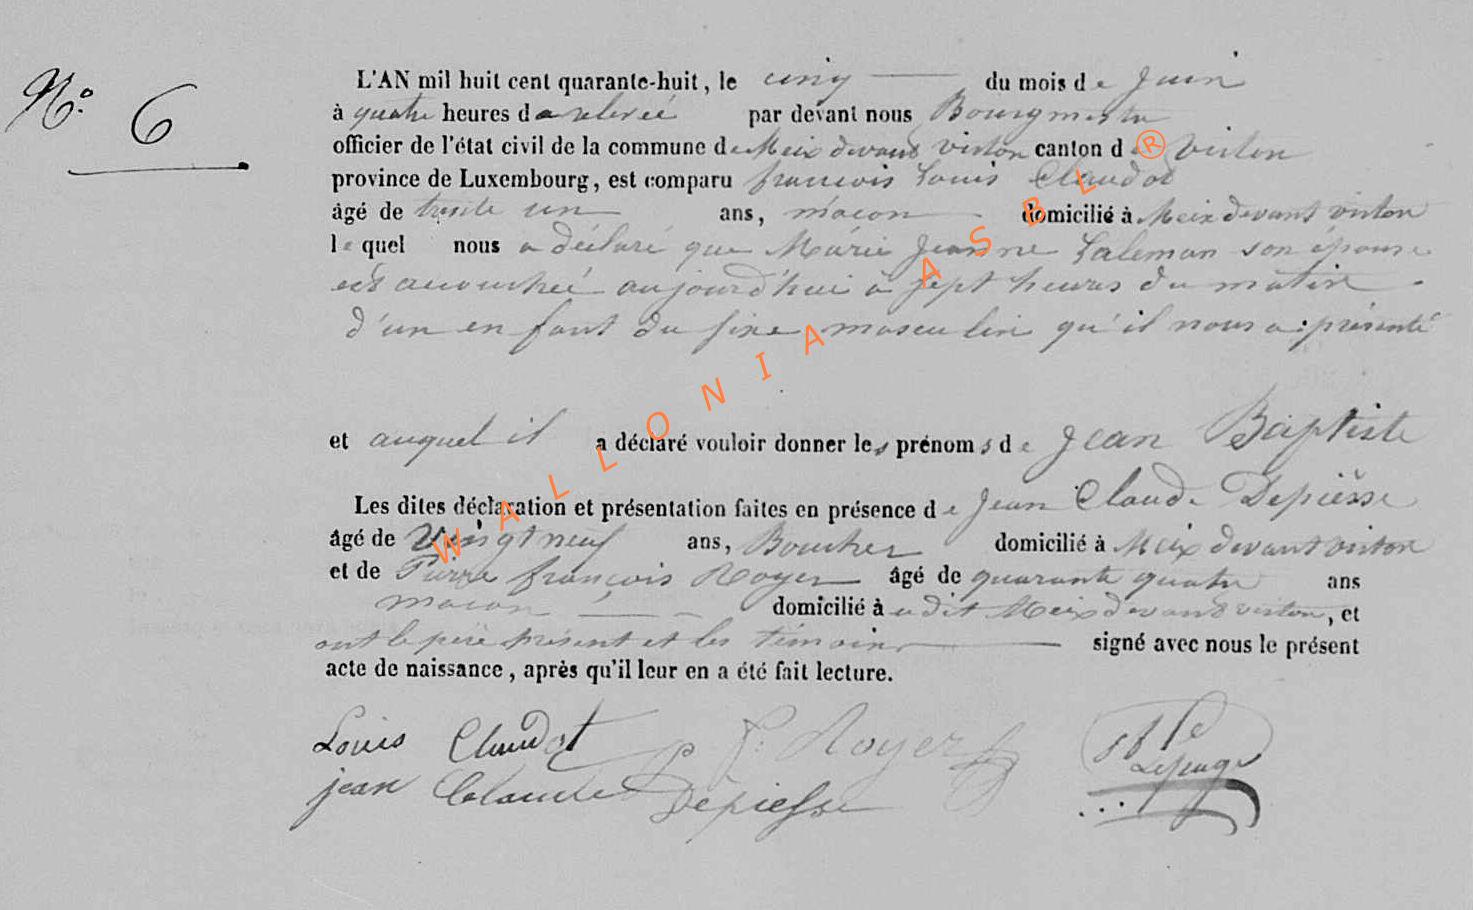 N.° 6
L'AN mil huit cent quarante-huit, le cinq du mois de Juin
à quatre heures de relevée par devant nous Bourgmestre
officier de l'état civil de la commune de Meix devant virton canton de ® Virton
province de Luxembourg, est comparu françois Louis Claudot
âgé de trente un ans, maçon domicilié à Meix devant virton
le quel nous a déclaré que Marie Jeanne Saleman son épouse
est accouchée aujourd'hui à sept heures du matin
d'un enfant du sixe masculin qu'il nous a présenté
et auquel il a déclaré vouloir donner les prénoms de Jean Baptiste
Les dites déclaration et présentation faites en présence de Jean Claude Depiésse
âgé de Vingt neuf ans, Boucher domicilié à Meix devant virton
et de Pierre françois Royer âgé de quarante quatre ans
maçon domicilié à dit Meix devant virton, et
ont le père présent et les témoins signé avec nous le présent
acte de naissance, après qu'il leur en a été fait lecture.
Louis Claudot P: Royer
Lepage
jean Claude Depiesse
WALLONIA ASBL